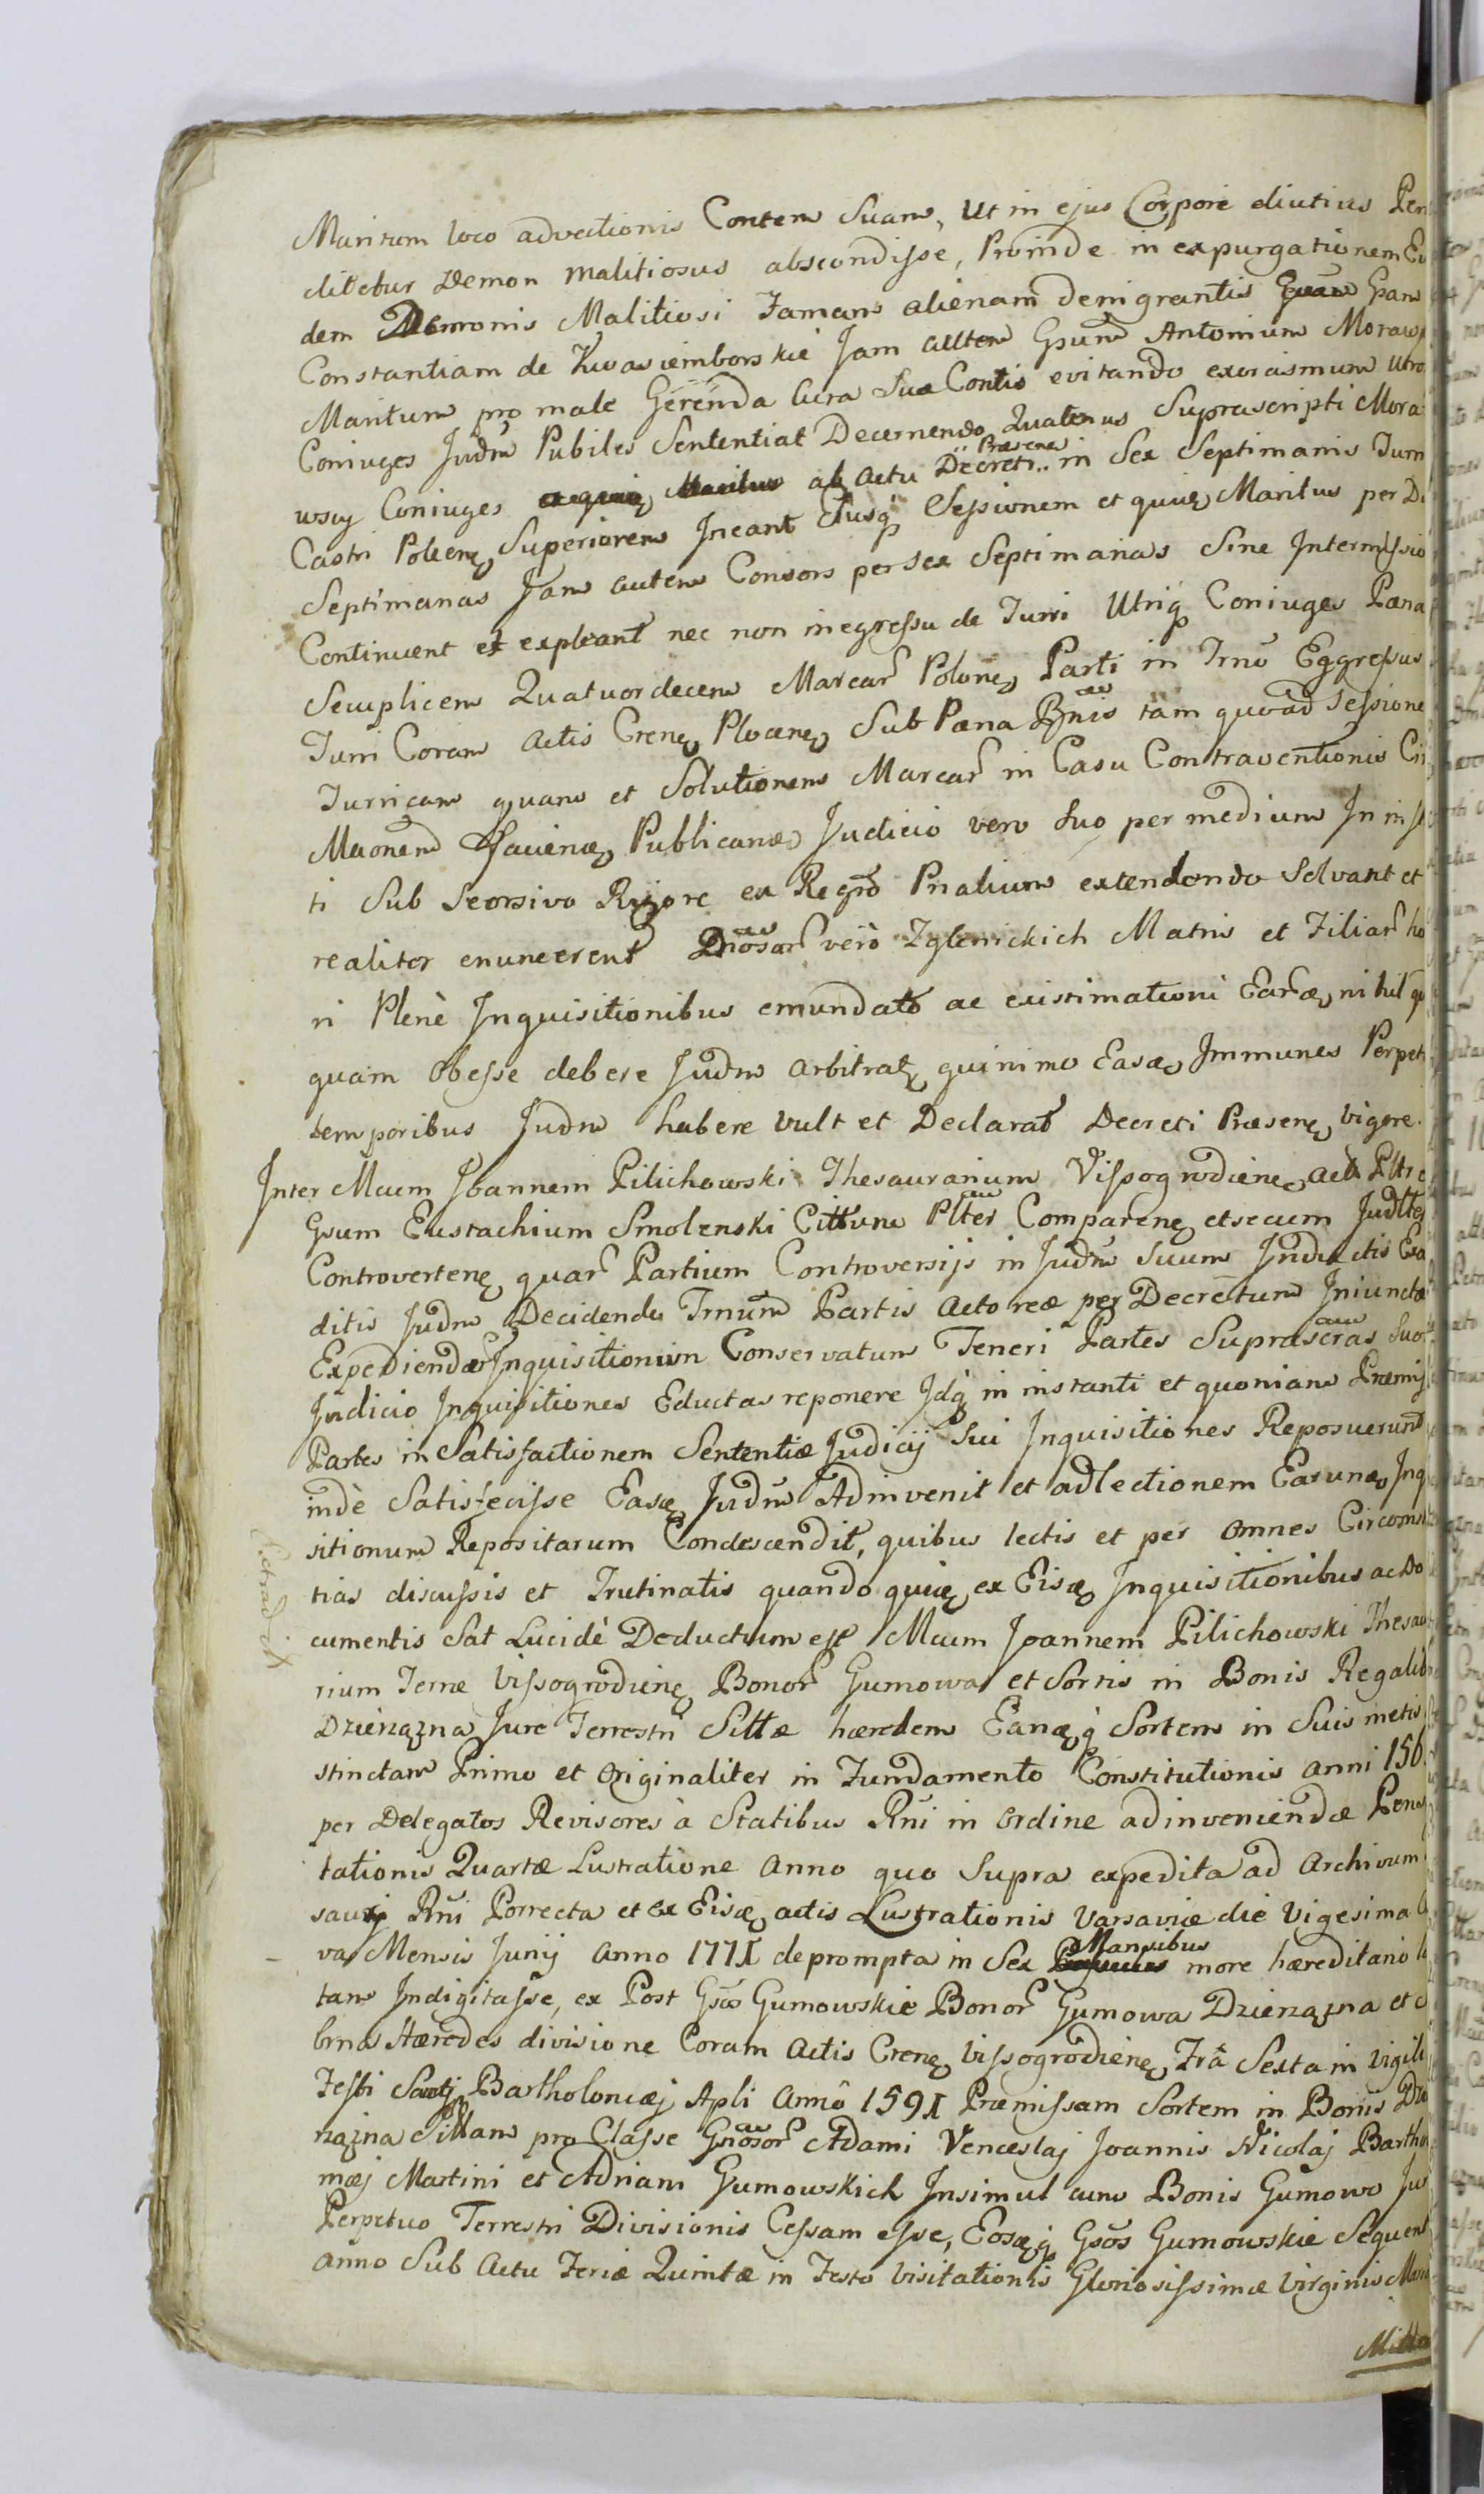 Maritum loco advectionis Contem Suam, Ut in ejus Corpore diutius
ditetur Demon malitiosus abscondisse, Proinde in expurgationem
dem Demonis Malitiosi Famam alienam denigrantis Gsam
Constantiam de Kwasiemborskie Jam autem Gsum Antonium Moraws
Maritum pro male Gerenda Cura Suæ Contis evitando exorcismum Utro
Coniuges Judm Pubiles Sententiat Decernendo Quatenus Suprascripti Mora
wscy Coniuges ab actu Decreti Præsens in Sex Septimanis Turr
Castri Polcens Superiorem Ineant Eiusq Sessionem et quis Maritus per
Septimanas Jam autem Consors per sex Septimanas Sine Intermissio
Continuent et expleant nec non in egressu de Turri Utriq Coniuges Pæna
Semplicem Quatuordecem Marcar Polone Parti in Trno Eggressus
Turri Coram Actis Crens Plocens Sub Pæna Bnis tam quoad Sessione
Turricam quam et Solutionem Marcar in Casu Contraventionis
Publicanæ Judicio vero Suo per medium
ti Sub Seorsivo Rigore ex Regro Prialium extendendo Solvant et
realiter enumerent Gnosar vero Zglenickich Matris et Filiar
ri Plenè Inquisitionibus emundato ac existimationi Earæ nihil
quam Obesse debere Judm arbitrat quinimo Easæ Immunes Perpet
temporibus Judm habere vult et Declarat Decreti Præsens vigore.
Inter Mcum Joannem Pilichowski Thesaurarium Vissogrodiens
Gsum Eustachium Smolenski Cittum Plter Comparens et secum Judlter
Controvertens quar Partium Controversijs in Judm Suum Inductis
ditis Judm Decidendo Trnum Partis Actoreæ per Decretum Iniunctæ
Expediendar Inquisitionum Conservatum Teneri Partes Suprascras Suo
Judicio Inquisitiones Eductas reponere Idq in instanti et quoniam Præmis
Partes in Satisfactionem Sententiæ Judicij Sui Inquisitiones Reposuerunt
indè Satisfecisse Easæ Judm Adinvenit et ad lectionem Earunæ Inq
sitionum Repositarum Condescendit, quibus lectis et per omnes Circoms
tias discussis et Trutinatis quando quis ex Eisæ Inquisitionibus ac Do
cumentis Sat Lucidè Deductum est Mcum Joannem Pilichowski Thesau
rium Terræ Vissogrodiens Bonor Gumowa et Sortis in Bonis Regalib
Dzierzązna Jure Terrestri Sittæ hæredem Eanæq Sortem in Suis metis
stinctam Primo et Originaliter in Fundamento Constitutionis anni 156
per Delegatos Revisores à Statibus Rni in Ordine adinveniendæ
tationis Quartæ Lustratione Anno quo Supra expedita ad Archivum
saurj Rni Porrecta et ex Eisæ actis Lustrationis Varsaviæ die Vigesima
va Mensis Junij Anno 1771 deprompta in Sex Mansibus more hæreditario
tam Indigitasse, ex Post Gsos Gumowskie Bonor Gumowa Dzierzązna et
brna Hæredes divisione Coram Actis Crens Vissogrodiens Fra Sexta in Vigili
Festi Sancti Bartholomæj Apli Anno 1591 Præmissam Sortem in Bonis
rzązna Sittam pro Classe Gnosor Adami Venceslaj Joannis Nicolaj Bartho
mæj Martini et Adriani Gumowskich Insimul cum Bonis Gumowo
Perpetuo Terrestri Divisionis Cessam esse, Eosæq Gsos Gumowskie Sequent
anno Sub Actu Feriæ Quintæ in Festo Visitationis Gloriosissimæ Virginis